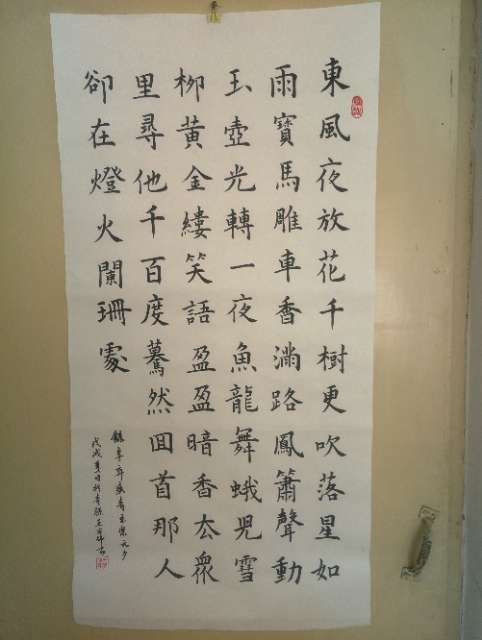 東風夜放花千樹更吹落星如
雨寶馬雕車香滿路鳳簫聲動
玉壺光轉一夜魚龍舞蛾兒雪
柳黃金縷笑語盈盈暗香去眾
里尋他千百度驀然回首那人
卻在燈火闌珊處
錄辛弃疾青玉案元夕
戊戌夏月